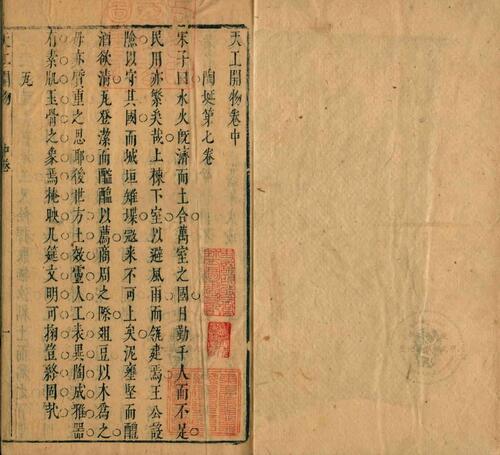 天工開物卷中
陶埏第七卷
宋子曰水火旣濟而土合萬室之國日勤千人而不足
民用亦繁矣哉上棟下室以避風雨而瓴建焉王公設
險以守其國而城垣雉堞寇來不可上矣泥甕堅而醴
酒欲清瓦登潔而醯醢以薦商周之際俎豆以木爲之
毋亦質重之思耶後世方土效靈人工表異陶成雅器
有素肌玉骨之象焉掩映几筵文明可掬豈終固哉
瓦
天工開物 中卷 一